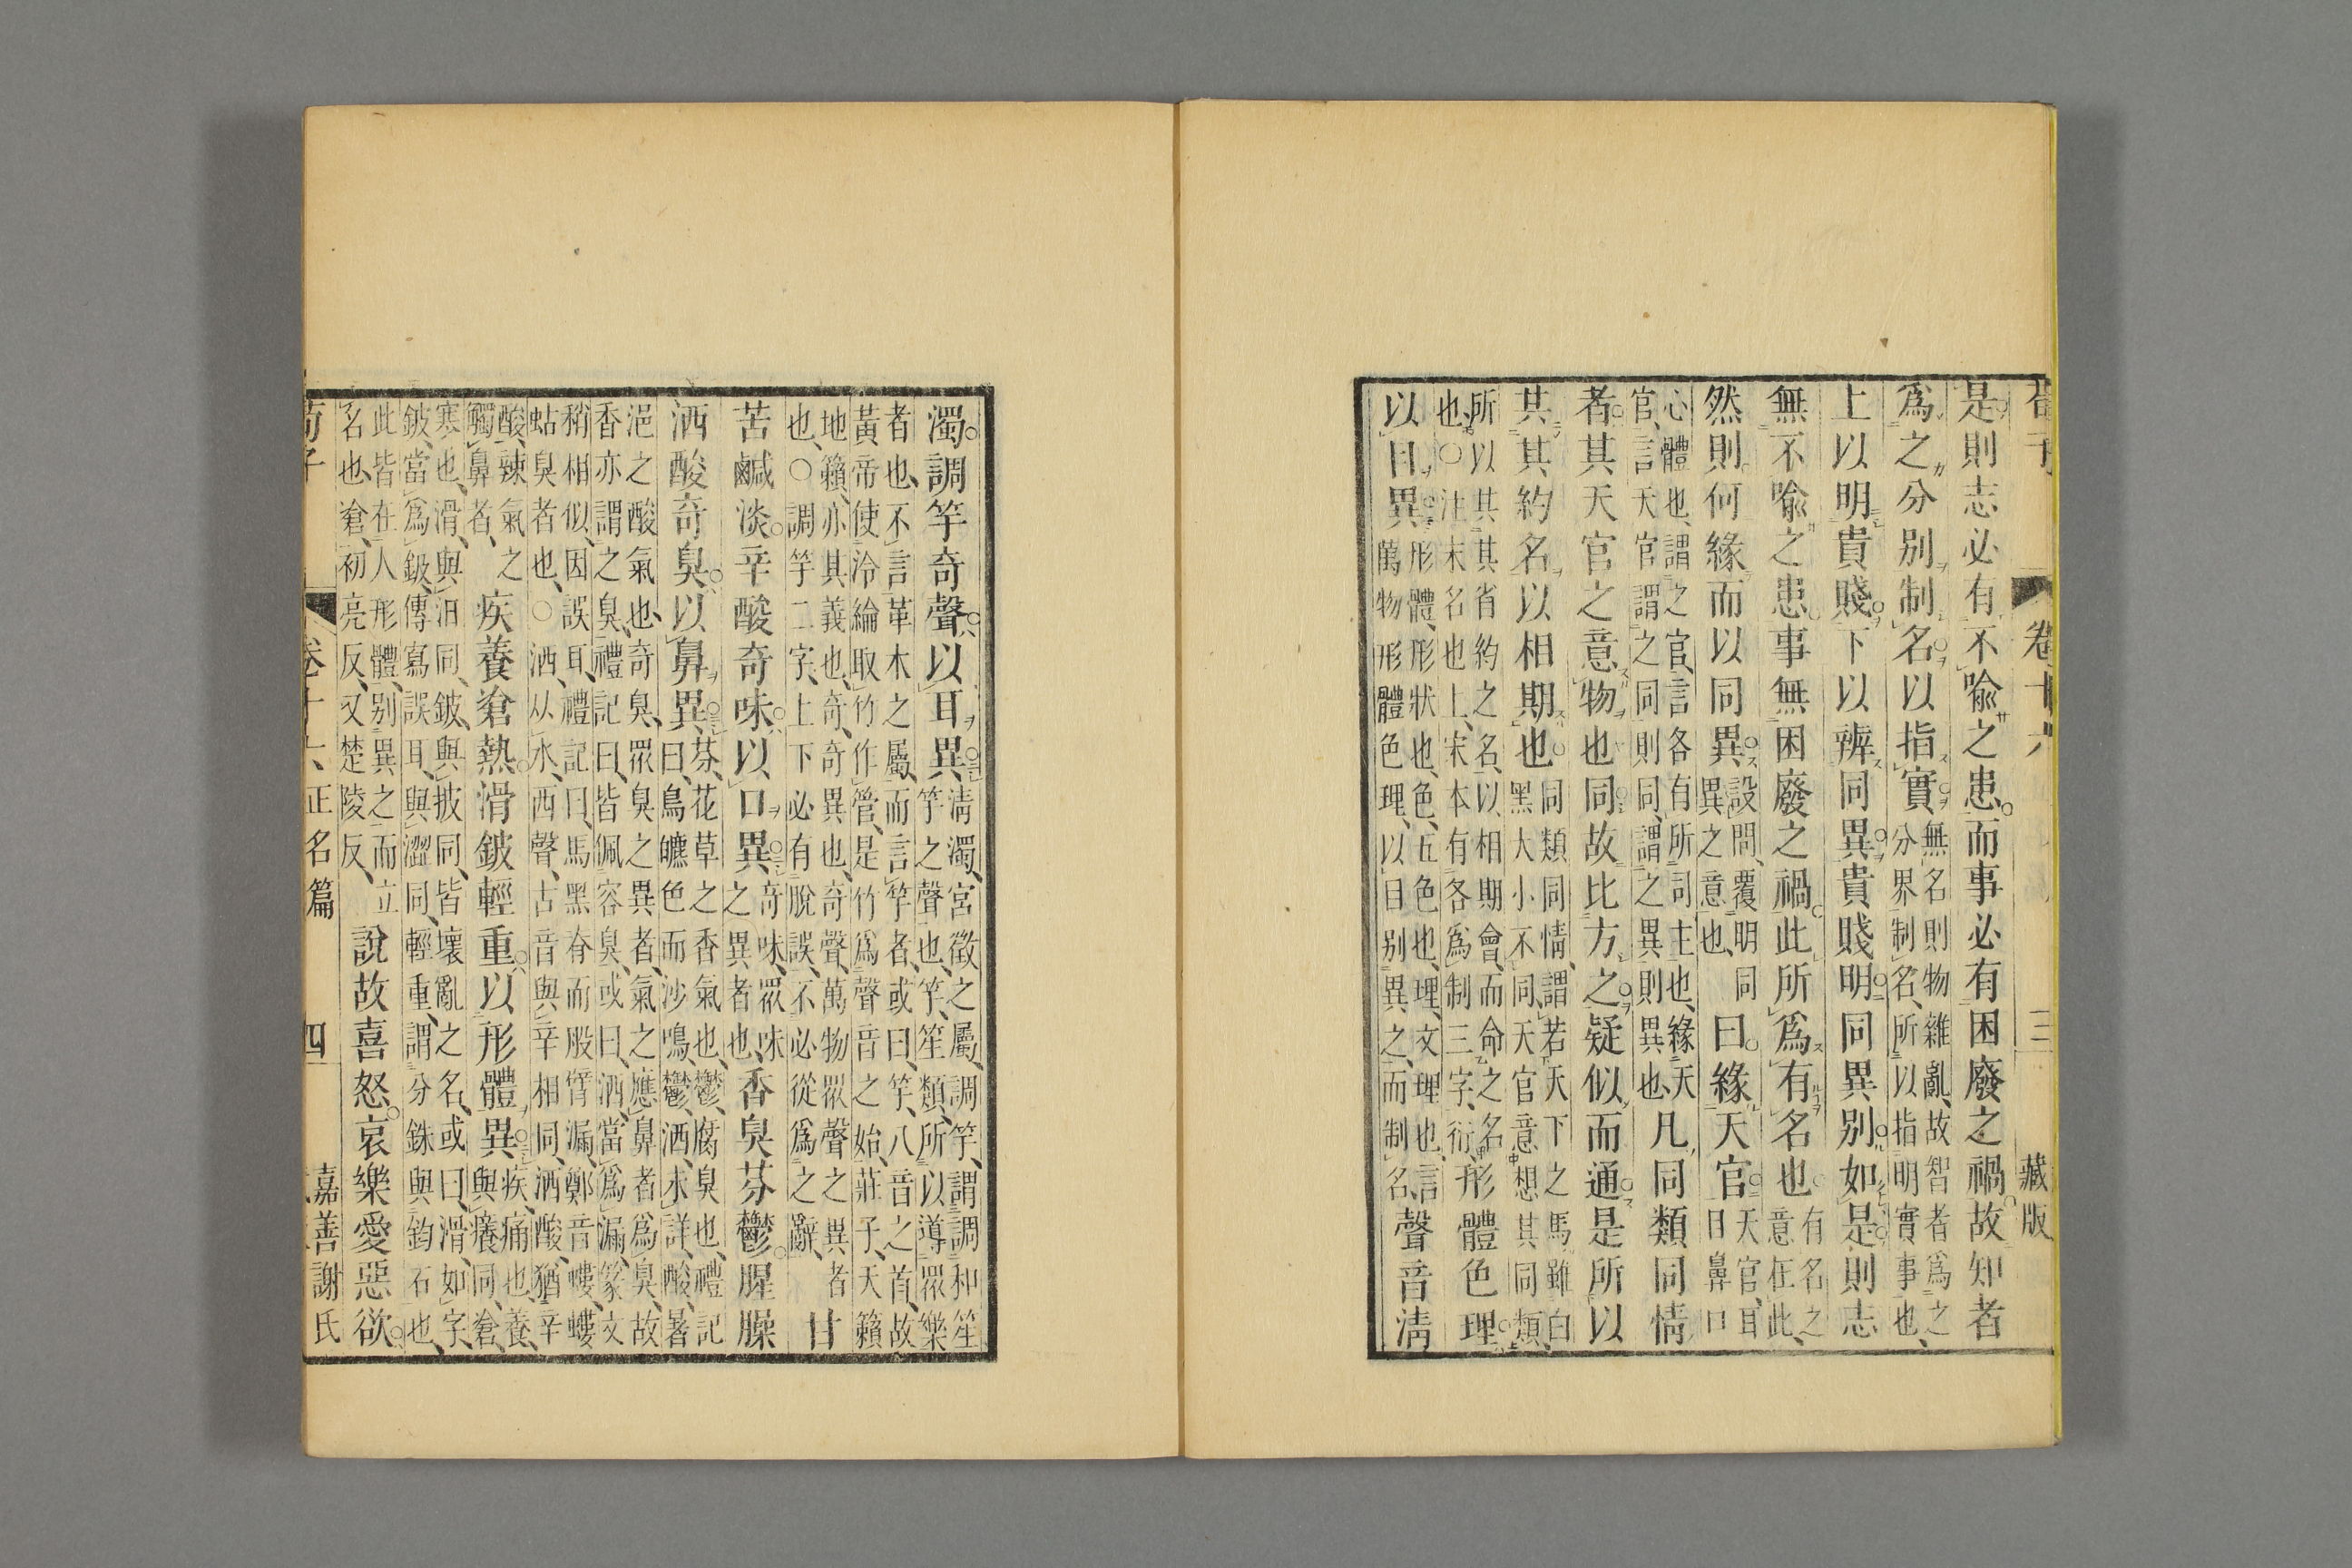 荀子 卷十六 三 藏版
是則志必有不喩之患而事必有困廢之禍故知者
爲之分別制名以指實無名則物雜亂故智者爲之分界制名所以指明實事也
上以明貴賤下以辨同異貴賤明同異別如是則志
無不喩之患事無困廢之禍此所爲有名也有名之意在此
然則何緣而以同異設問覆明同異之意也曰緣天官天官耳目鼻口
心體也謂之官言各有所司主也緣天官言天官謂之同則同謂之異則異也凡同類同情
者其天官之意物也同故比方之疑似而通是所以
共其約名以相期也同類同情謂若天下之馬雖白黑大小不同天官意想其同類
所以共其省約之名以相期會而命之名也○注末名也上宋本有各爲制三字衍形體色理
以目異形體形狀也色五色也理文理也言萬物形體色理以目別異之而制名聲音淸
濁調竽奇聲以耳異淸濁宮徵之屬調竽謂調和笙竽之聲也竽笙類所以導眾樂
者也不言革木之屬而言竽者或曰竽八音之首故黃帝使泠綸取竹作管是竹爲聲音之始莊子天籟
地籟亦其義也奇奇異也奇聲萬物眾聲之異者也○調竽二字上下必有脫誤不必從爲之辭甘
苦鹹淡辛酸奇味以口異奇味眾味之異者也香臭芬鬱腥臊
洒酸奇臭以鼻異芬花草之香氣也鬱腐臭也禮記曰鳥皫色而沙鳴鬱洒未詳酸暑
浥之酸氣也奇臭眾臭之異者氣之應鼻者爲臭故香亦謂之臭禮記曰皆佩容臭或曰洒當爲漏篆文
稍相似因誤耳禮記曰馬黑脊而般臂漏鄭音螻螻蛄臭者也○洒从水西聲古音與辛相同洒酸猶辛
酸辣氣之觸鼻者疾養凔熱滑鈹輕重以形體異疾痛也養與癢同凔
寒也滑與汩同鈹與披同皆壞亂之名或曰滑如字鈹當爲鈒傳寫誤耳與澀同輕重謂分銖與鈞石也
此皆在人形體別異之而立名也凔初亮反又楚陵反說故喜怒哀樂愛惡欲
荀子 卷十六 正名篇 四 嘉善謝氏